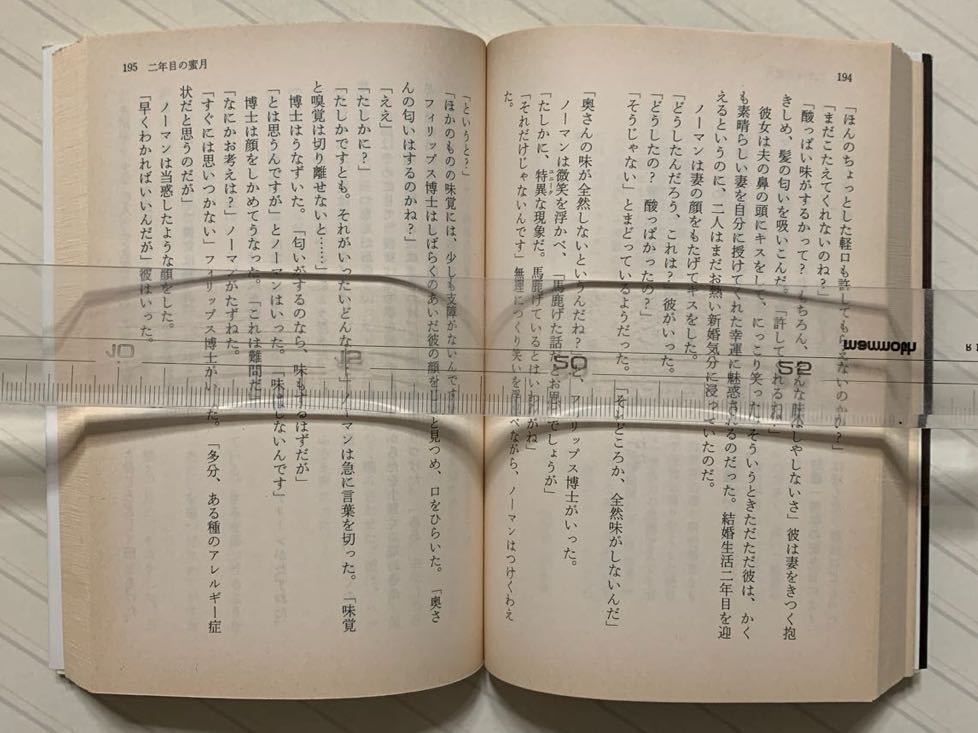 194
「ほんのちょっとした軽口も許してもらえないのかい?」
「まだこたえてくれないのね?」
「酸っぱい味がするかって? もちろん、そんな味はしやしないさ」彼は妻をきつく抱
きしめ、髪の匂いを吸いこんだ。「許してくれるね?」
彼女は夫の鼻の頭にキスをして、にっこり笑った。そういうときただただ彼は、かく
も素晴らしい妻を自分に授けてくれた幸運に魅惑されるのだった。結婚生活二年目を迎
えるというのに、二人はまだお熱い新婚気分に浸っていたのだ。
ノーマンは妻の顔をもたげてキスをした。
「どうしたんだろう、これは?」彼がいった。
「どうしたの? 酸っぱかったの?」
「そうじゃない」とまどっているようだった。「それどころか、全然味がしないんだ」
「奥さんの味が全然しないというんだね?」と、フィリップス博士がいった。
ノーマンは微笑を浮かべ、「馬鹿げた話だとお思いでしょうが」
「たしかに、特異な現象だ。馬鹿げているとはいわんがね」
ユニーク
「それだけじゃないんです」無理につくり笑いを浮べながら、ノーマンはつけくわえ
た。
195 二年目の蜜月
「というと?」
「ほかのものの味覚には、少しも支障がないんです」
フィリップス博士はしばらくのあいだ彼の顔をじっと見つめ、口をひらいた。「奥さ
んの匂いはするのかね?」
「ええ」
「たしかに?」
「たしかですとも。それがいったいどんな……」ノーマンは急に言葉を切った。「味覚
と嗅覚は切り離せないと……」
博士はうなずいた。「匂いがするのなら、味もするはずだが」
「とは思うんですが」とノーマンはいった。「味はしないんです」
博士は顔をしかめてうなった。「これは難問だ」
「なにかお考えは?」ノーマンがたずねた。
「すぐには思いつかない」フィリップス博士がいった。「多分、ある種のアレルギー症
状だと思うのだが」
ノーマンは当惑したような顔をした。
「早くわかればいいんだが」彼はいった。
mammoth